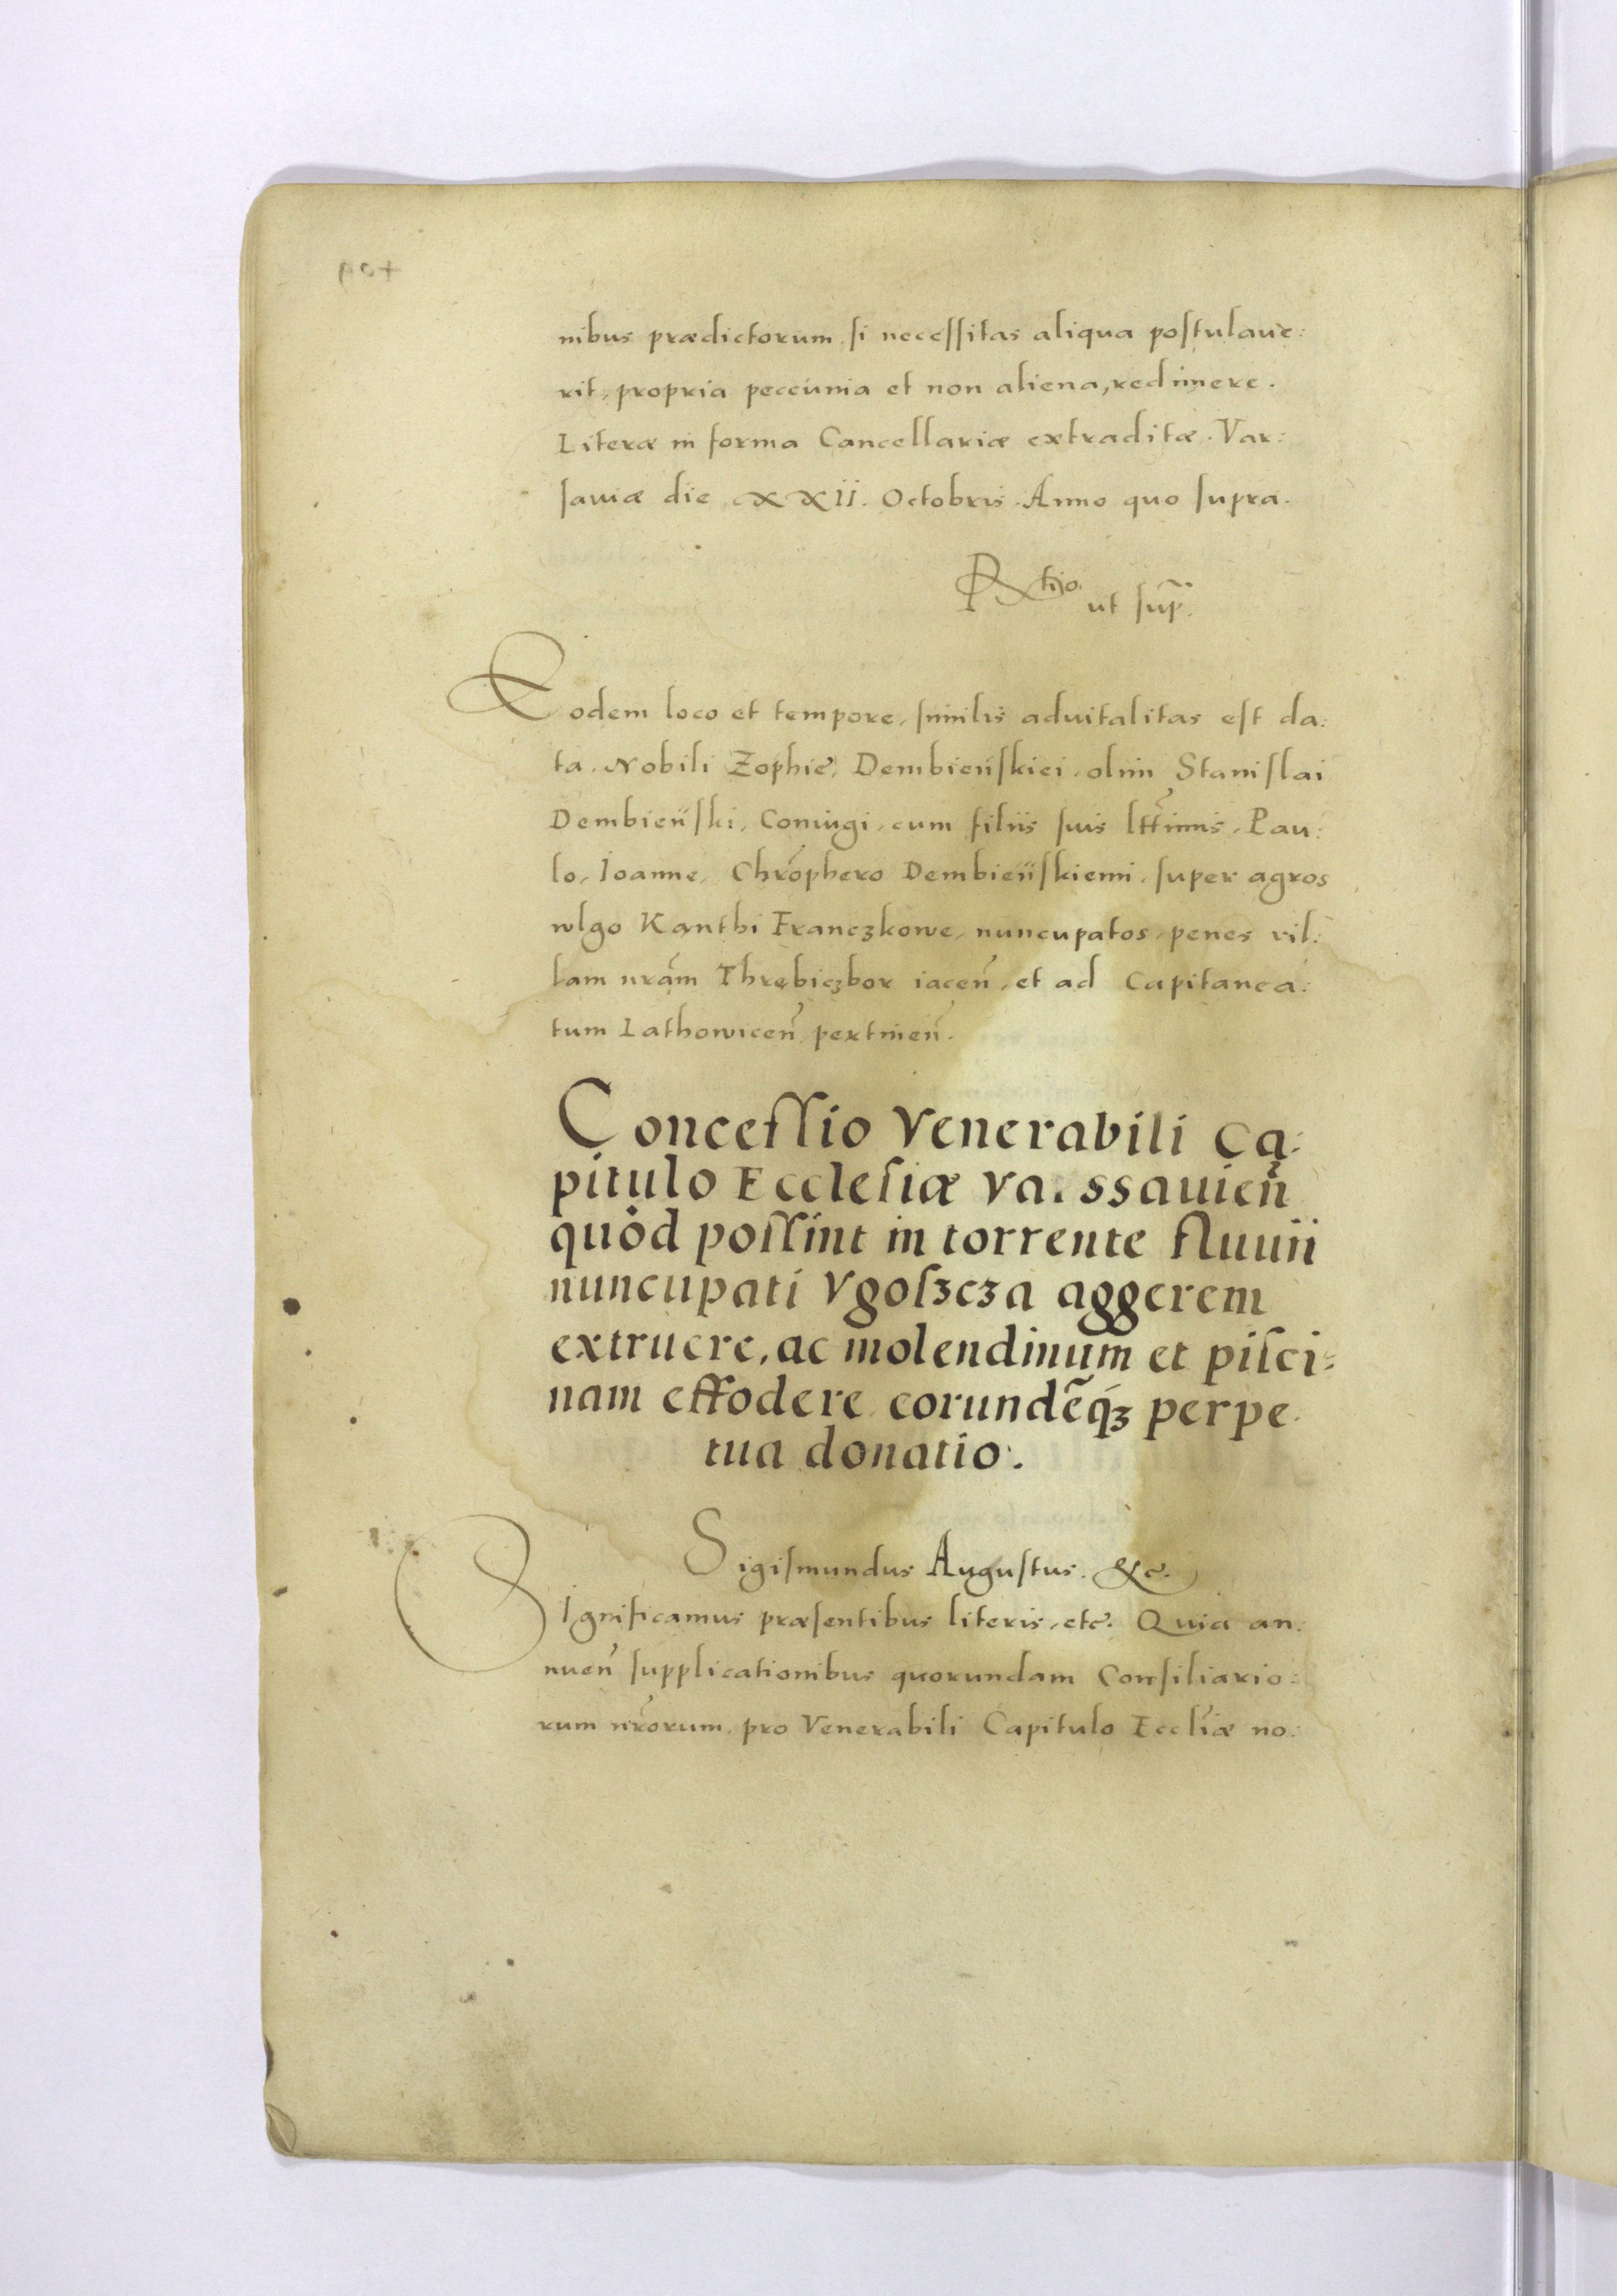 nibus prædictorum, si necessitas aliqua postulaue:
rit, propria peccunia et non aliena, redimere.
Literæ in forma Cancellariæ extraditæ. Var:
sauiæ die XXII. Octobris. Anno quo supra.
ut sup̃.
Eodem loco et tempore, similis aduitalitas est da:
ta. Nobili Zophie, Dembieńskiei, olim Stanislai
Dembieński, Coniugi, cum filiis suis lt̃timis, Pau:
lo, Ioanne, Chrõphero Dembieńskiemi, super agros
wlgo Kanthi Franczkowe, nuncupatos, penes vil:
lam nr̃am Thrębiczbor iaceñ, et ad Capitanea:
tum Lathowiceñ pertineñ.
Concessio Venerabili Ca:
pitulo Ecclesiæ Varssauieñ
quòd possint in torrente fluuii
nuncupati Vgoszcza aggerem
extruere, ac molendinum et pisci:
nam effodere eorundẽq₃ perpe:
tua donatio.
Sigismundus Augustus. &c.
SIgnificamus præsentibus literis, etc. Quia an:
nueñ supplicationibus quorundam Consiliario:
rum nr̃orum, pro Venerabili Capitulo Eccl̃iæ no: